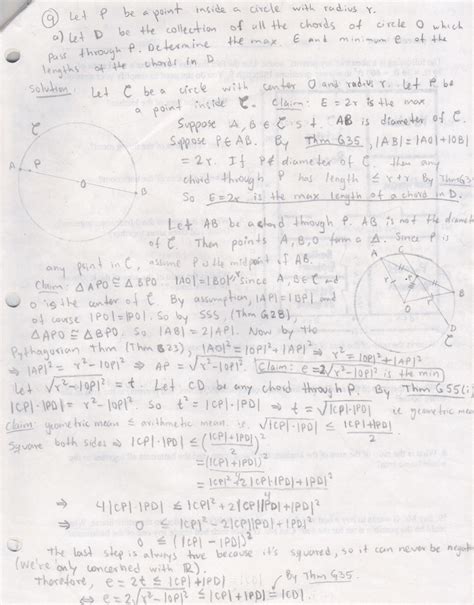 ⑨ Let P be a point inside a circle with radius r.
a) Let D be the collection of all the chords of circle O which
pass through P. Determine the max. E and minimum e of the
lengths of the chords in D.
Solution: Let C be a circle with center O and radius r. Let P be
a point inside C. Claim: E = 2r is the max
Suppose A, B ∈ C s.t. AB is diameter of C.
Suppose P∈AB. By Thm G35, |AB| = |AO| + |OB|
= 2r. If P∉ diameter of C, then any
chord through P has length ≤ r + r. By Thm G35
So E = 2r is the max length of a chord in D.
Let AB be a chord through P. AB is not the diameter
of C. Then points A, B, O form a Δ. Since P is
any point in C, assume P is the midpoint of AB.
Claim: ΔAPO ≅ ΔBPO. |AO| = |BO| = r since A, B ∈ C and
O is the center of C. By assumption, |AP| = |BP| and
of cause |PO| = |PO|. So by SSS, (Thm G28),
ΔAPO ≅ ΔBPO. So |AB| = 2|AP|. Now by the
Pythagorian Thm (Thm G23), |AO|² = |OP|² + |AP|² ⇒ r² = |OP|² + |AP|²
⇒ |AP|² = r² - |OP|² ⇒ AP = √r² - |OP|². Claim: e = 2√r² - |OP|² is the min
Let √r² - |OP|² = t. Let CD be any chord through P. By Thm G55(i)
|CP|·|PD| = r² - |OP|². So t² = |CP|·|PD| ⇒ t = √|CP|·|PD| i.e. geometric mean
Claim: geometric mean ≤ arithmetic mean. i.e. √|CP|·|PD| ≤ |CP| + |PD| / 2
Square both sides ⇒ |CP|·|PD| ≤ (|CP| + |PD| / 2)²
= (|CP| + |PD|)² / 4
= |CP|² + 2|CP|·|PD| + |PD|² / 4
⇒ 4|CP|·|PD| ≤ |CP|² + 2|CP||PD| + |PD|²
⇒ 0 ≤ |CP|² - 2|CP||PD| + |PD|²
⇒ 0 ≤ (|CP| - |PD|)²
The last step is always true because it's squared, so it can never be negative
(we're only concerned with ℝ).
Therefore, e = 2t ≤ |CP| + |PD| By Thm G35
⇔ e = 2√r² - |OP|² ≤ |CD|
C
A
P
O
B
C
A
C
r
O
r
P
B
D